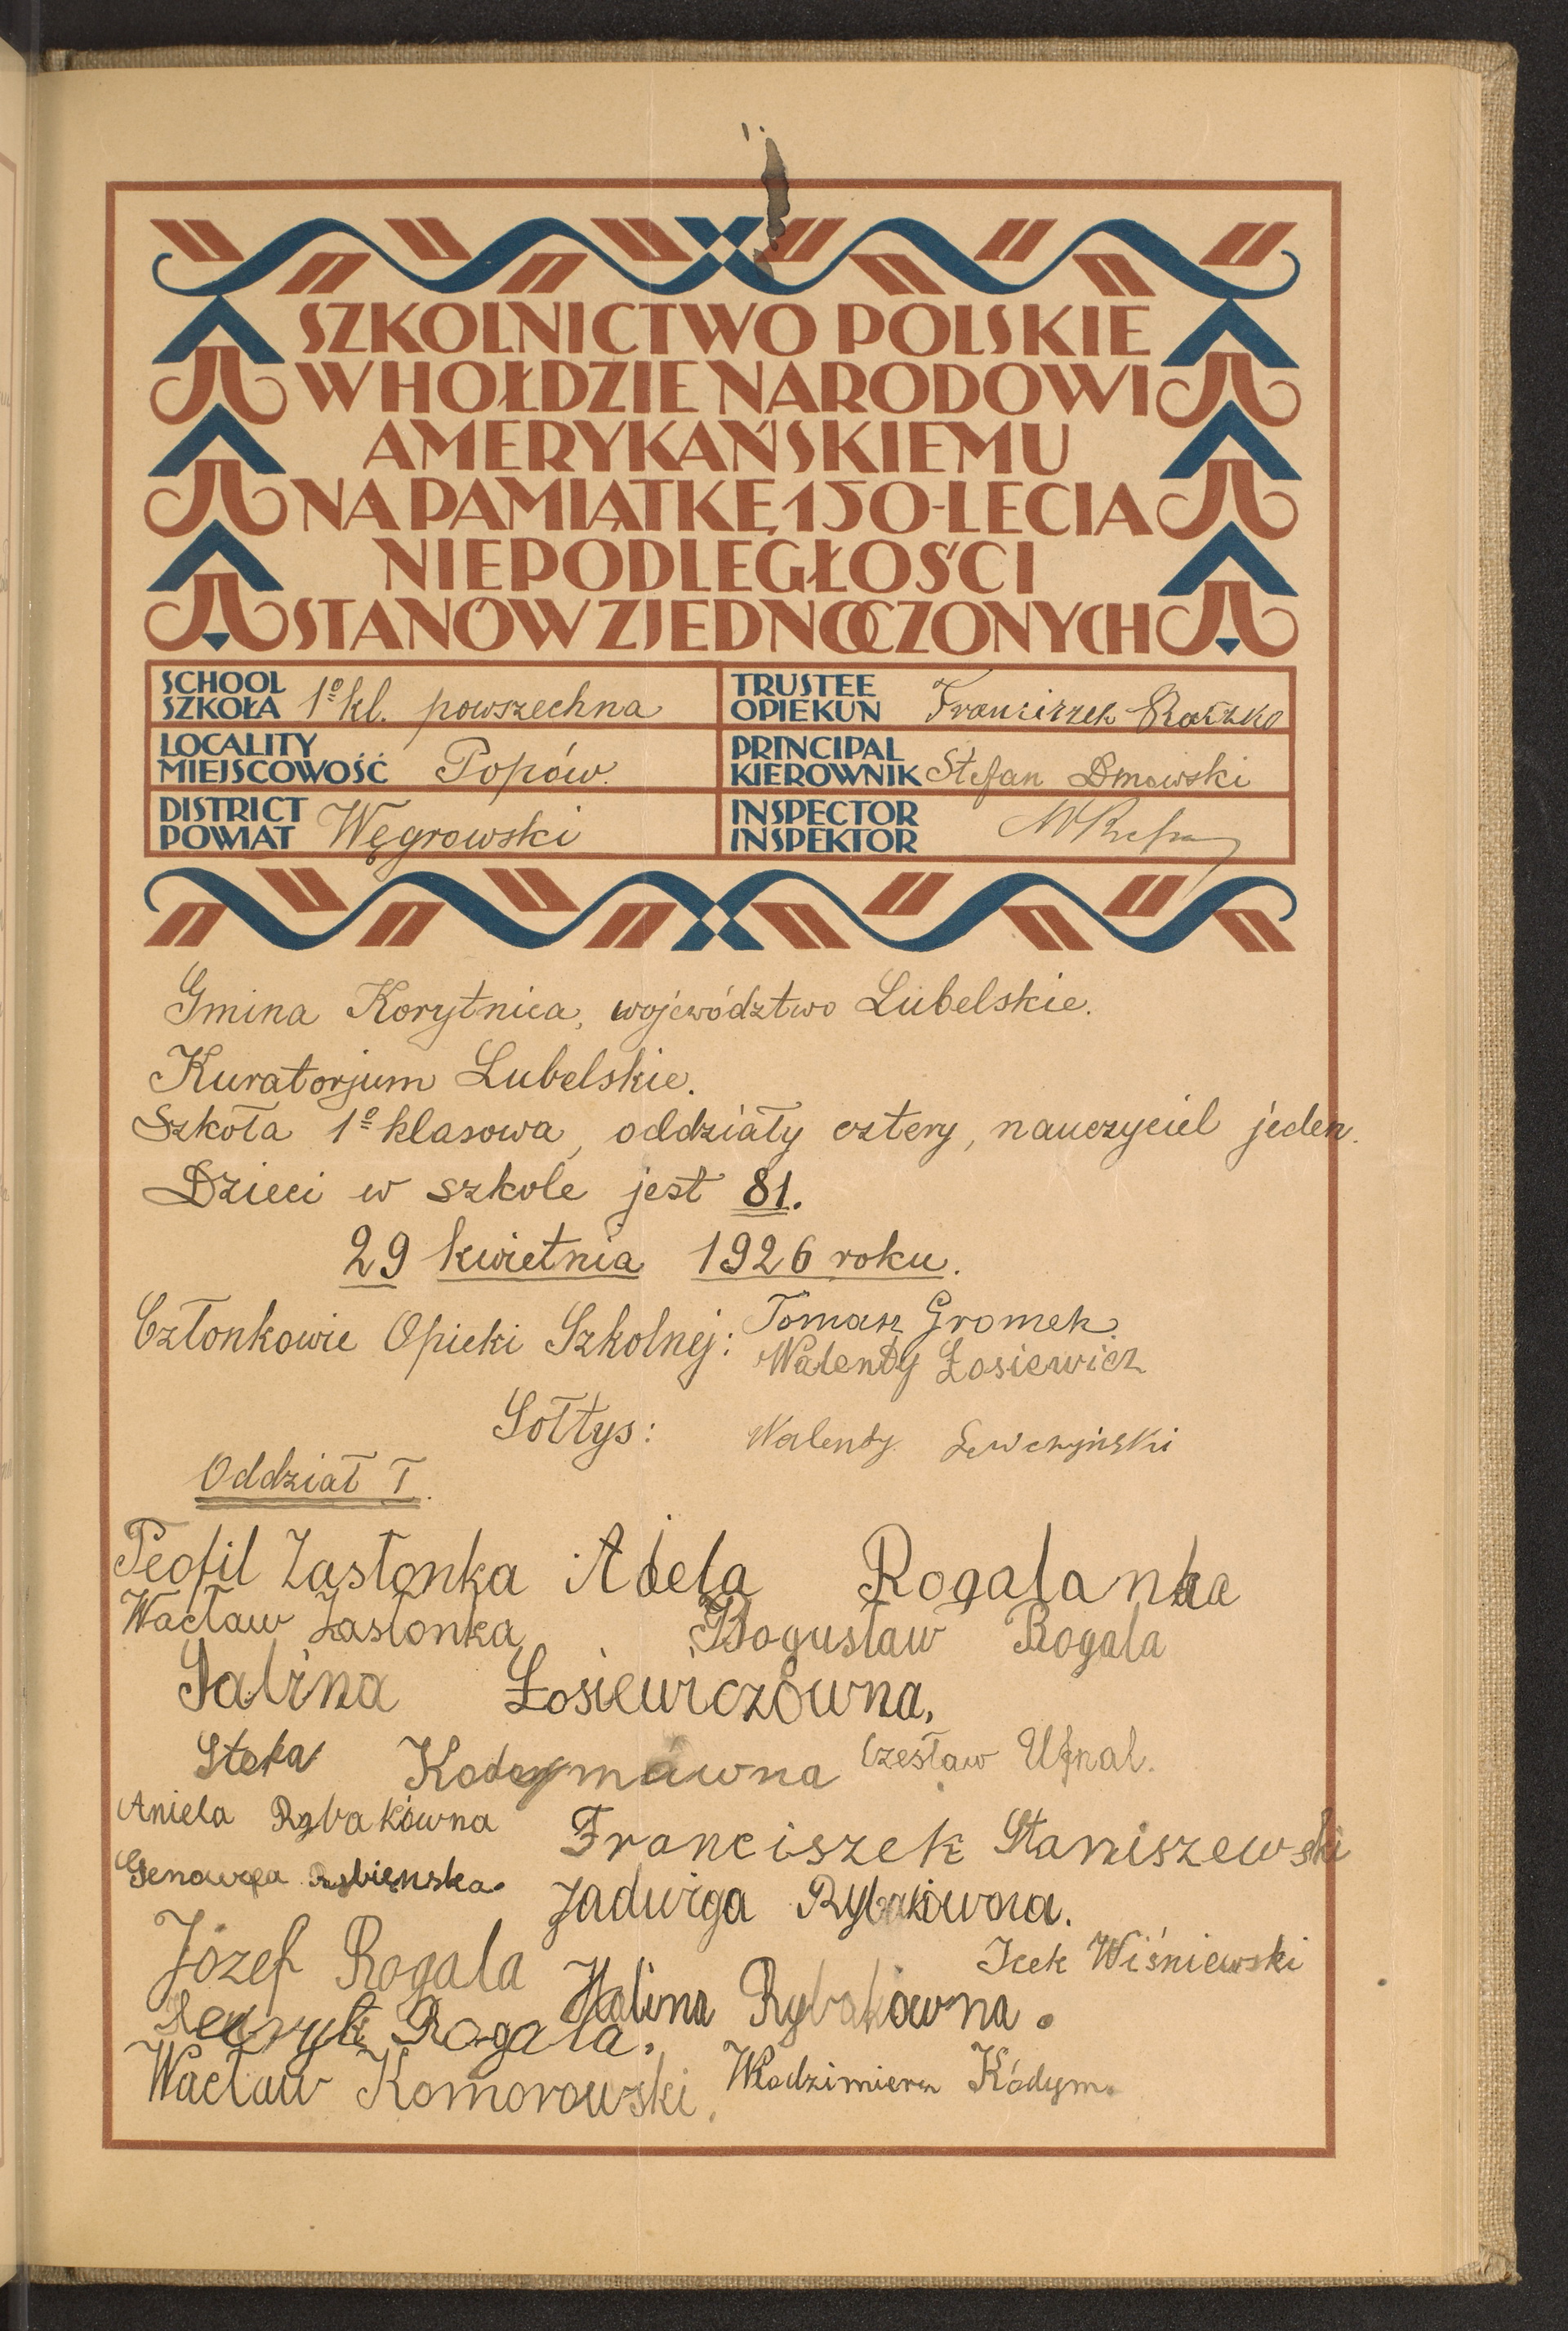 SZKOLNICTWO POLSKIE
W HOŁDZIE NARODOWI
AMERYKAŃSKIEMU
NA PAMIĄTKĘ 150-LECIA
NIEPODLEGŁOŚCI
STANÓW ZJEDNOCZONYCH
SCHOOL
SZKOŁA 1º kl. powszechna
TRUSTEE
OPIEKUN Franciszek Raczko
LOCALITY
MIEJSCOWOŚĆ Popów.
PRINCIPAL
KIEROWNIK Stefan Dmowski
DISTRICT
POWIAT Węgrowski
INSPECTOR
INSPEKTOR
Gmina Korytnica, województwo Lubelskie.
Kuratorjum Lubelskie.
Szkoła 1º klasowa, oddziały cztery, nauczyciel jeden.
Dzieci w szkole jest 81.
29 kwietnia 1926 roku.
Członkowie Opieki Szkolnej: Tomasz Gromek.
Walenty Łosiewicz
Sołtys: Walenty Lewczyński
Oddział I.
Teofil Zasłonka Adela Rogalanka
Wacław Zasłonka Bogusław Rogala
Salina Łosiewiczówna.
Stefa Kodymówna Czesław Ufnal.
Aniela Rybakówna Franciszek Staniszewski
Genowefa Rybienska. Jadwiga Rybakówna.
Józef Rogala Icek Wiśniewski
Halina Rybakowna.
Henryk Rogala.
Wacław Komorowski. Włodzimierz Kódym.